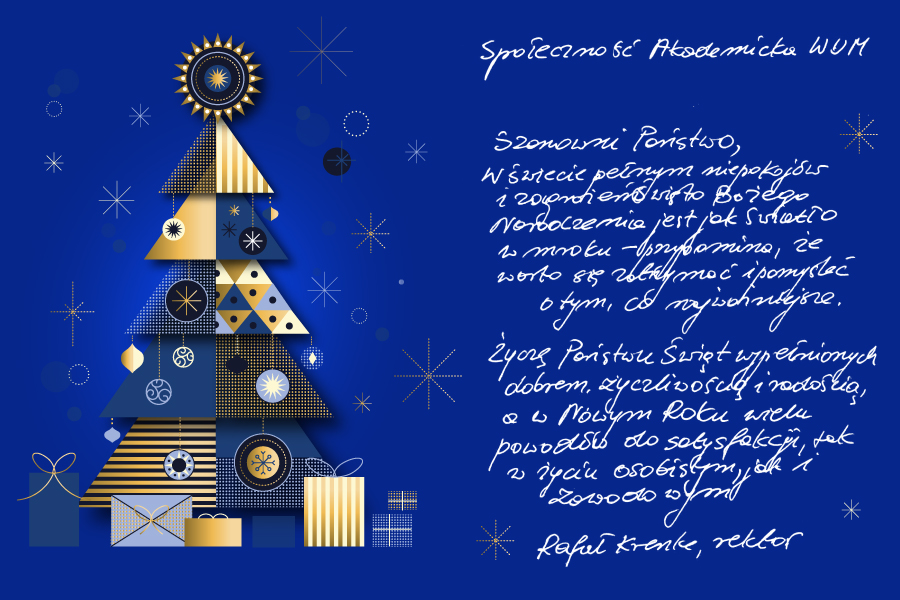 Społeczność Akademicka WUM
Szanowni Państwo,
W świecie pełnym niepokojów
i zagonień Święta Bożego
Narodzenia jest jak światło
w mroku – przypomina, że
warto się zatrzymać i pomyśleć
o tym, co najważniejsze.
Życzę Państwu Świąt wypełnionych
dobrem, życzliwością i radością,
a w Nowym Roku wielu
powodów do satysfakcji, tak
w życiu osobistym, jak i
zawodowym
Rafał Krenke, rektor